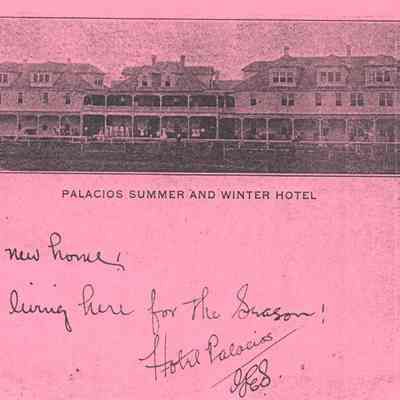 PALACIOS SUMMER AND WINTER HOTEL
new home!
living here for the Season!
Hotel Palacios